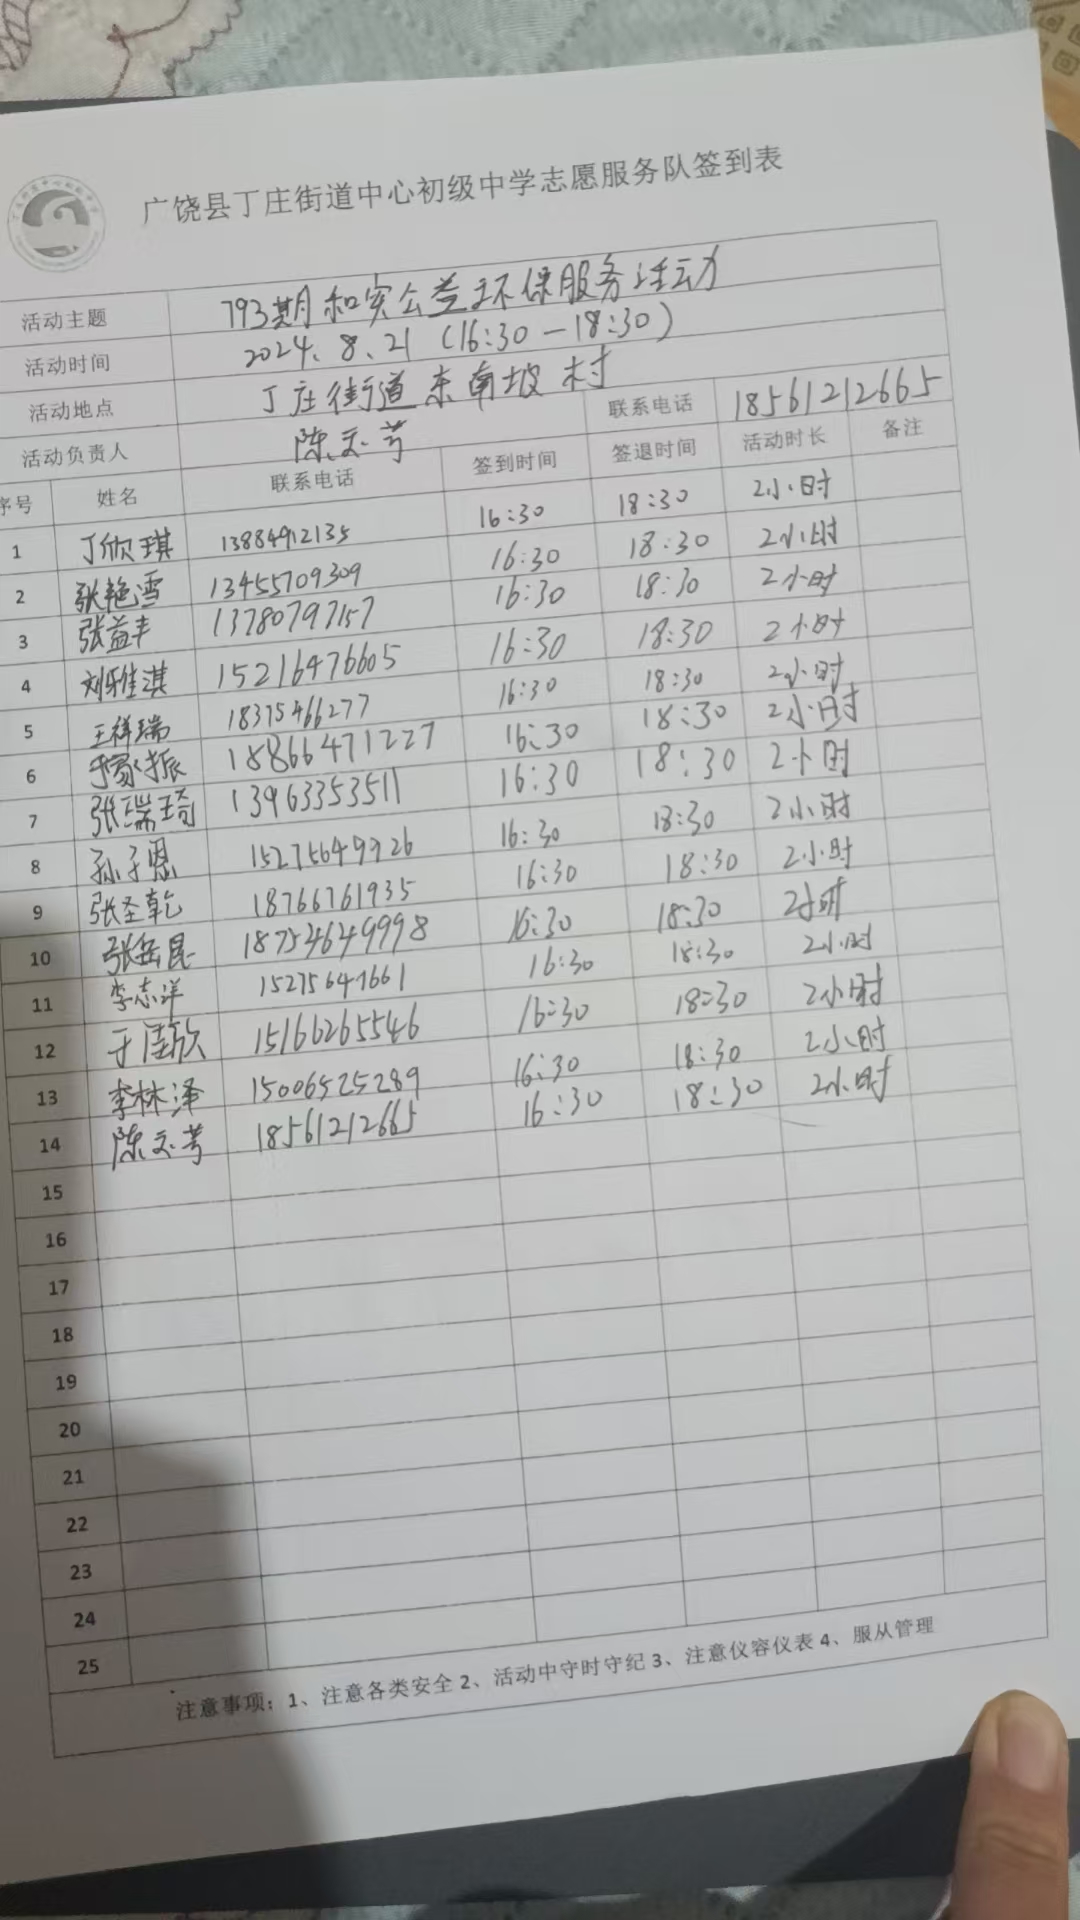 广饶县丁庄街道中心初级中学志愿服务队签到表
活动主题 793期和实公益环保服务活动
活动时间 2024.8.21 (16:30-18:30)
活动地点 丁庄街道东南坡村
活动负责人 陈文芳 联系电话 18561212665
序号 姓名 联系电话 签到时间 签退时间 活动时长 备注
1 丁欣琪 13884912135 16:30 18:30 2小时
2 张艳雪 13455709309 16:30 18:30 2小时
3 张益丰 13780797157 16:30 18:30 2小时
4 刘雅淇 15216476605 16:30 18:30 2小时
5 王祥瑞 18375466277 16:30 18:30 2小时
6 18866471227 16:30 18:30 2小时
7 张瑞琦 13963353511 16:30 18:30 2小时
8 孙子恩 15275649926 16:30 18:30 2小时
9 张圣乾 18766761935 16:30 18:30 2小时
10 张岳昆 18754649998 16:30 18:30 2小时
11 李志洋 15275647661 16:30 18:30 2小时
12 于佳欣 15166265546 16:30 18:30 2小时
13 李林泽 15006525289 16:30 18:30 2小时
14 陈文芳 18561212665 16:30 18:30 2小时
15
16
17
18
19
20
21
22
23
24
25
注意事项：1、注意各类安全 2、活动中守时守纪 3、注意仪容仪表 4、服从管理